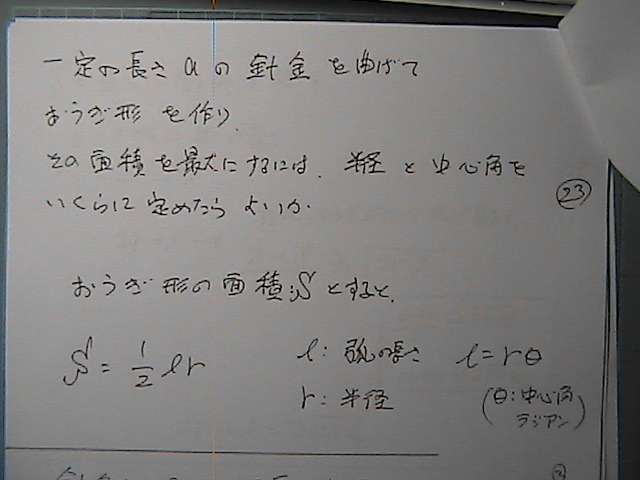 一定の長さ a の 針金 を曲げて
おうぎ形 を作り、
その面積を最大にするには、半径 と 中心角を
いくらに定めたら よいか
23
おうぎ形の面積:S とすると、
S = 1/2 lr
l: 弧の長さ l = rθ
r: 半径
(θ:中心角
ラジアン)